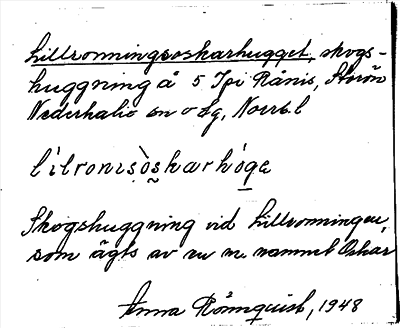 Lillronningsoskarhugget, skogs-
huggning å 5 Tpi Rånis, Storön
Nederkalix sn o lg, Norrb. l
lilronisòskarhóge
Skogshuggning vid Lillronningen,
som ägts av en m. namnet Oskar
Anna Rönnquist, 1948